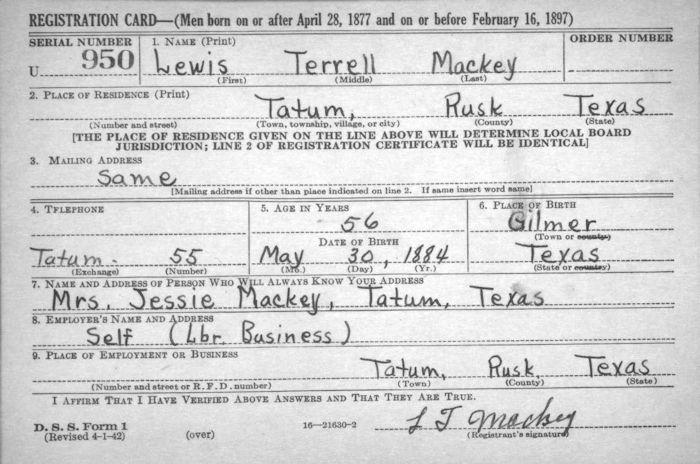 REGISTRATION CARD—(Men born on or after April 28, 1877 and on or before February 16, 1897)
SERIAL NUMBER 1. NAME (Print) ORDER NUMBER
U 950 Lewis Terrell Mackey
(First) (Middle) (Last)
2. PLACE OF RESIDENCE (Print)
Tatum, Rusk Texas
(Number and street) (Town, township, village, or city) (County) (State)
[THE PLACE OF RESIDENCE GIVEN ON THE LINE ABOVE WILL DETERMINE LOCAL BOARD
JURISDICTION; LINE 2 OF REGISTRATION CERTIFICATE WILL BE IDENTICAL]
3. MAILING ADDRESS
Same
[Mailing address if other than place indicated on line 2. If same insert word same]
4. TELEPHONE 5. AGE IN YEARS 6. PLACE OF BIRTH
56 Gilmer
DATE OF BIRTH (Town or county)
Tatum - 55 May 30, 1884 Texas
(Exchange) (Number) (Mo.) (Day) (Yr.) (State or country)
7. NAME AND ADDRESS OF PERSON WHO WILL ALWAYS KNOW YOUR ADDRESS
Mrs. Jessie Mackey, Tatum, Texas
8. EMPLOYER'S NAME AND ADDRESS
Self (Lbr. Business)
9. PLACE OF EMPLOYMENT OR BUSINESS
Tatum, Rusk, Texas
(Number and street or R. F. D. number) (Town) (County) (State)
I AFFIRM THAT I HAVE VERIFIED ABOVE ANSWERS AND THAT THEY ARE TRUE.
L T Mackey
D. S. S. Form 1 16—21630-2 (Registrant's signature)
(Revised 4-1-42) (over)